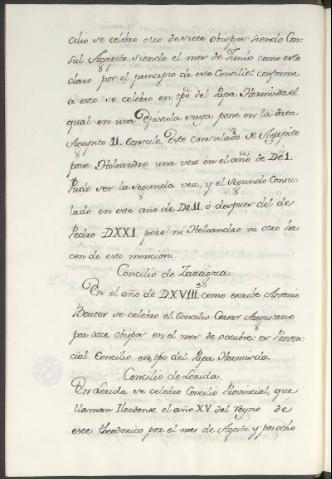 cilio se celebro otro de siete obispos siendo Con-
sul Agapito siendo el mes de Junio como esta
claro por el principio de este Concilio: conforme
a esto se celebro en tpõ del Papa Hormisda el
qual en una Epistola suya pone en la data
Agapito II. Consule. Este consulado de Agapito
pone Holoandro una vez en el año de
Pudo ser la segunda vez, y el segundo Consu-
lado en este año de ó despues del de
Pedro DXXI pero ni Holoandro ni otro ha-
cen de esto mencion.
Concilio de Zaragoza
En el año de DXVIII como escribe Antonio
se celebro el Concilio Cesar Augustano
por doce obispos en el mes de octubre es Provin-
cial Concilio en tpõ del Papa Hormisda.
Concilio de Lerida.
En Lerida se celebro Concilio Provincial, que
llaman Ilerdense el año XV. del Reyno de
este theodorico por el mes de Agosto y por ocho